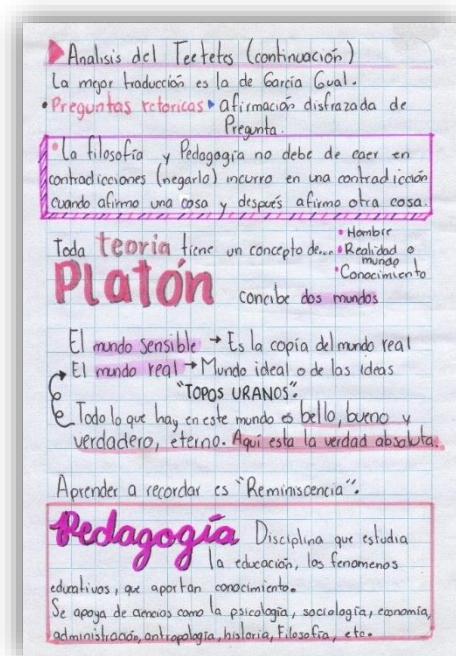 Analisis del Teetetes (continuación)
La mejor traducción es la de García Gual.
• Preguntas retoricas ▸ afirmación disfrazada de
Pregunta.
• La filosofía y Pedagogía no debe de caer en
contradicciones (negarlo) incurro en una contradicción
cuando afirmo una cosa y después afirmo otra cosa.
Toda teoría tiene un concepto de...
• Hombre
• Realidad o
mundo
• Conocimiento
Platón concibe dos mundos
El mundo sensible → Es la copia del mundo real
El mundo real → Mundo ideal o de las ideas
"TOPOS URANOS".
Todo lo que hay en este mundo es bello, bueno y
verdadero, eterno. Aquí esta la verdad absoluta.
Aprender a recordar es "Reminiscencia".
Pedagogía Disciplina que estudia
la educación, los fenomenos
educativos, que aportan conocimiento.
Se apoya de ciencias como la psicología, sociología, economía,
administración, antropología, historia, Filosofía, etc.